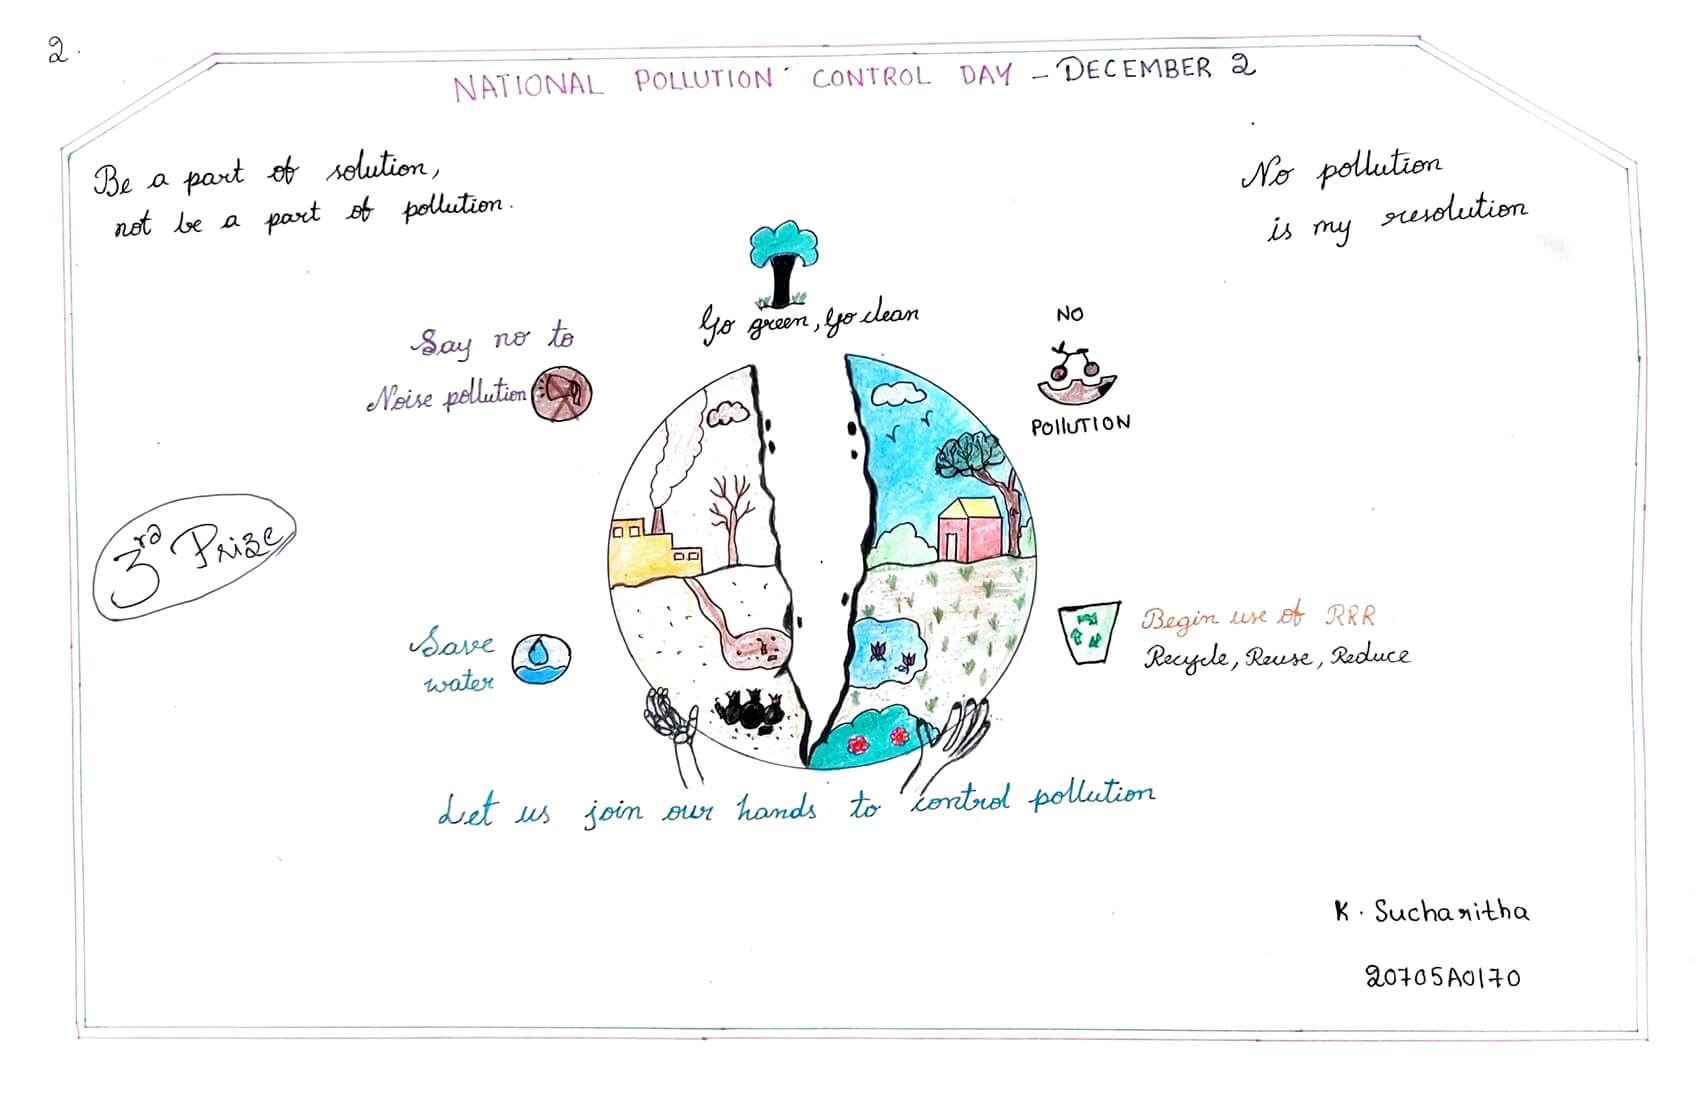 2.
NATIONAL POLLUTION CONTROL DAY - DECEMBER 2
Be a part of solution,
not be a part of pollution.
No pollution
is my resolution
Go green, Go clean
Say no to
Noise pollution
NO
POLLUTION
3rd Prize
Save
water
Begin use of RRR
Recycle, Reuse, Reduce
Let us join our hands to control pollution
K. Sucharitha
20705A0170